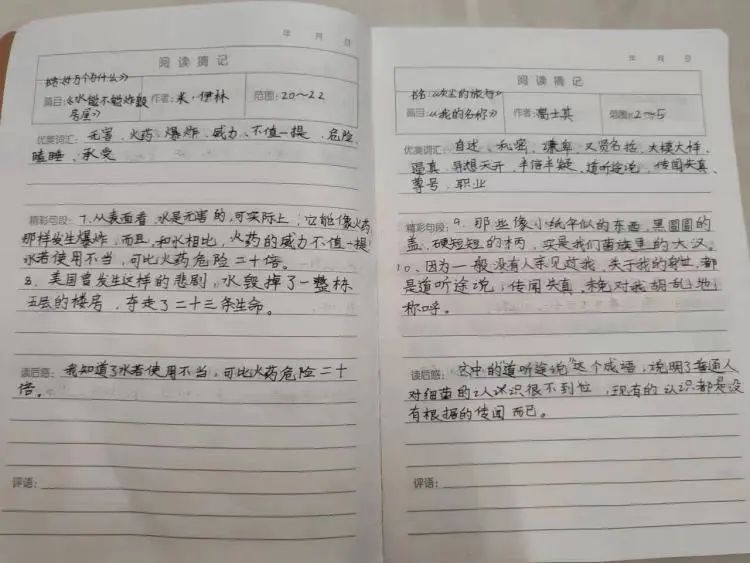 年 月 日
阅读摘记
书名:《十万个为什么》
篇目:《水能不能炸毁
房屋》
作者:米·伊林
范围:20~22
优美词汇: 无害、火药、爆炸、威力、不值一提、危险、
瞌睡、承受
精彩句段: 7.从表面看,水是无害的,可实际上,它能像火药
那样发生爆炸,而且,和水相比,火药的威力不值一提
水若使用不当,可比火药危险二十倍。
8.美国曾发生这样的悲剧,水毁掉了一整栋
五层的楼房,夺走了二十三条生命。
读后感: 我知道了水若使用不当,可比火药危险二十
倍。
评语:
年 月 日
阅读摘记
书名:《灰尘的旅行》
篇目:《我的名称》
作者:高士其
范围:2~5
优美词汇: 自述、私密、谦卑、又贤名括、大模大样、
逼真、异想天开、半信半疑、道听途说、传闻失真、
尊号、职业
精彩句段: 9.那些像小纸伞似的东西,黑圆圆的
盖,硬短短的柄,实是我们菌族里的大汉。
10、因为一般没有人亲见过我,关于我的身世,都
是道听途说,传闻失真,未免对我胡乱地
称呼。
读后感: 这中的"道听途说"这个成语,说明了普通人
对细菌的认识很不到位,现有的认识都是没
有根据的传闻而已。
评语: